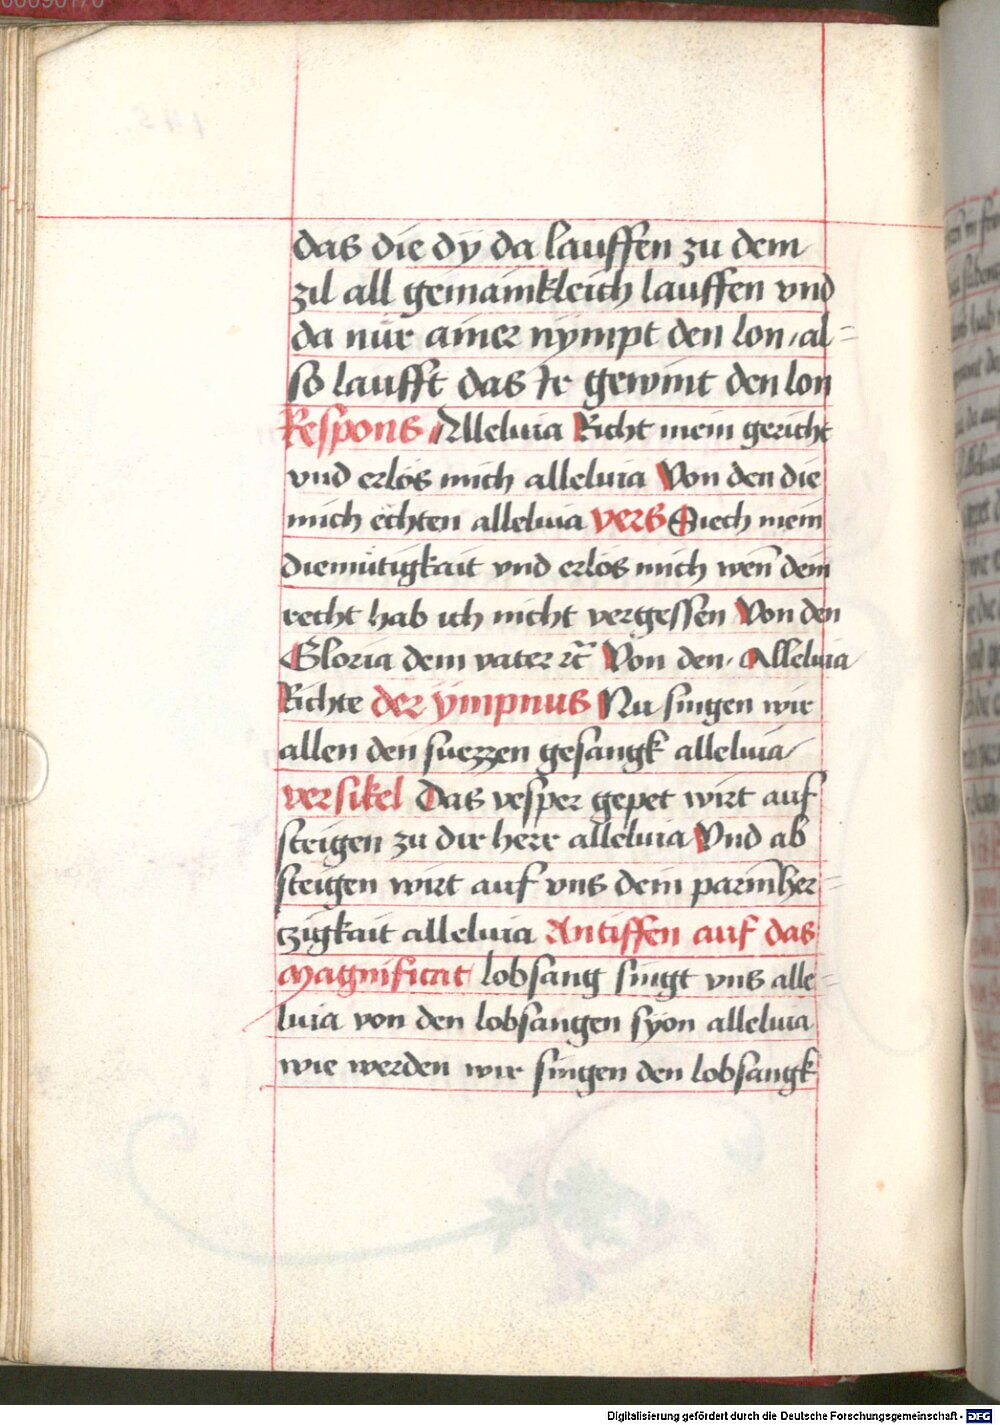 das die dÿ da lauffen zu dem
zil all gemainkleich lauffen vnd
da nür ainer nÿmpt den lon / al=
so laufft das Ir gewint den lon
Respons Alleluia Richt mein gericht
vnd erlös mich alleluia Von den die
mich ëchten alleluia vers Siech mein
diemütigkait vnd erlös mich wen̄ dein
recht hab ich nicht vergessen Von den
Gloria dem vater ⁊c̄ Von den. Alleluia
Richte der ÿmpnus Nu singen wir
allen den suezzen gesangk alleluia
versikel Das vesper gepet wirt auf
steigen zu dir herr alleluia Vnd ab
steigen wirt auf vns dein parmher=
czigkait alleluia Antiffen auf das
magnificat lobsang singt vns alle=
luia von den lobsangen sÿon alleluia
wie werden wir singen den lobsangk
Digitalisierung gefördert durch die Deutsche Forschungsgemeinschaft - DFG